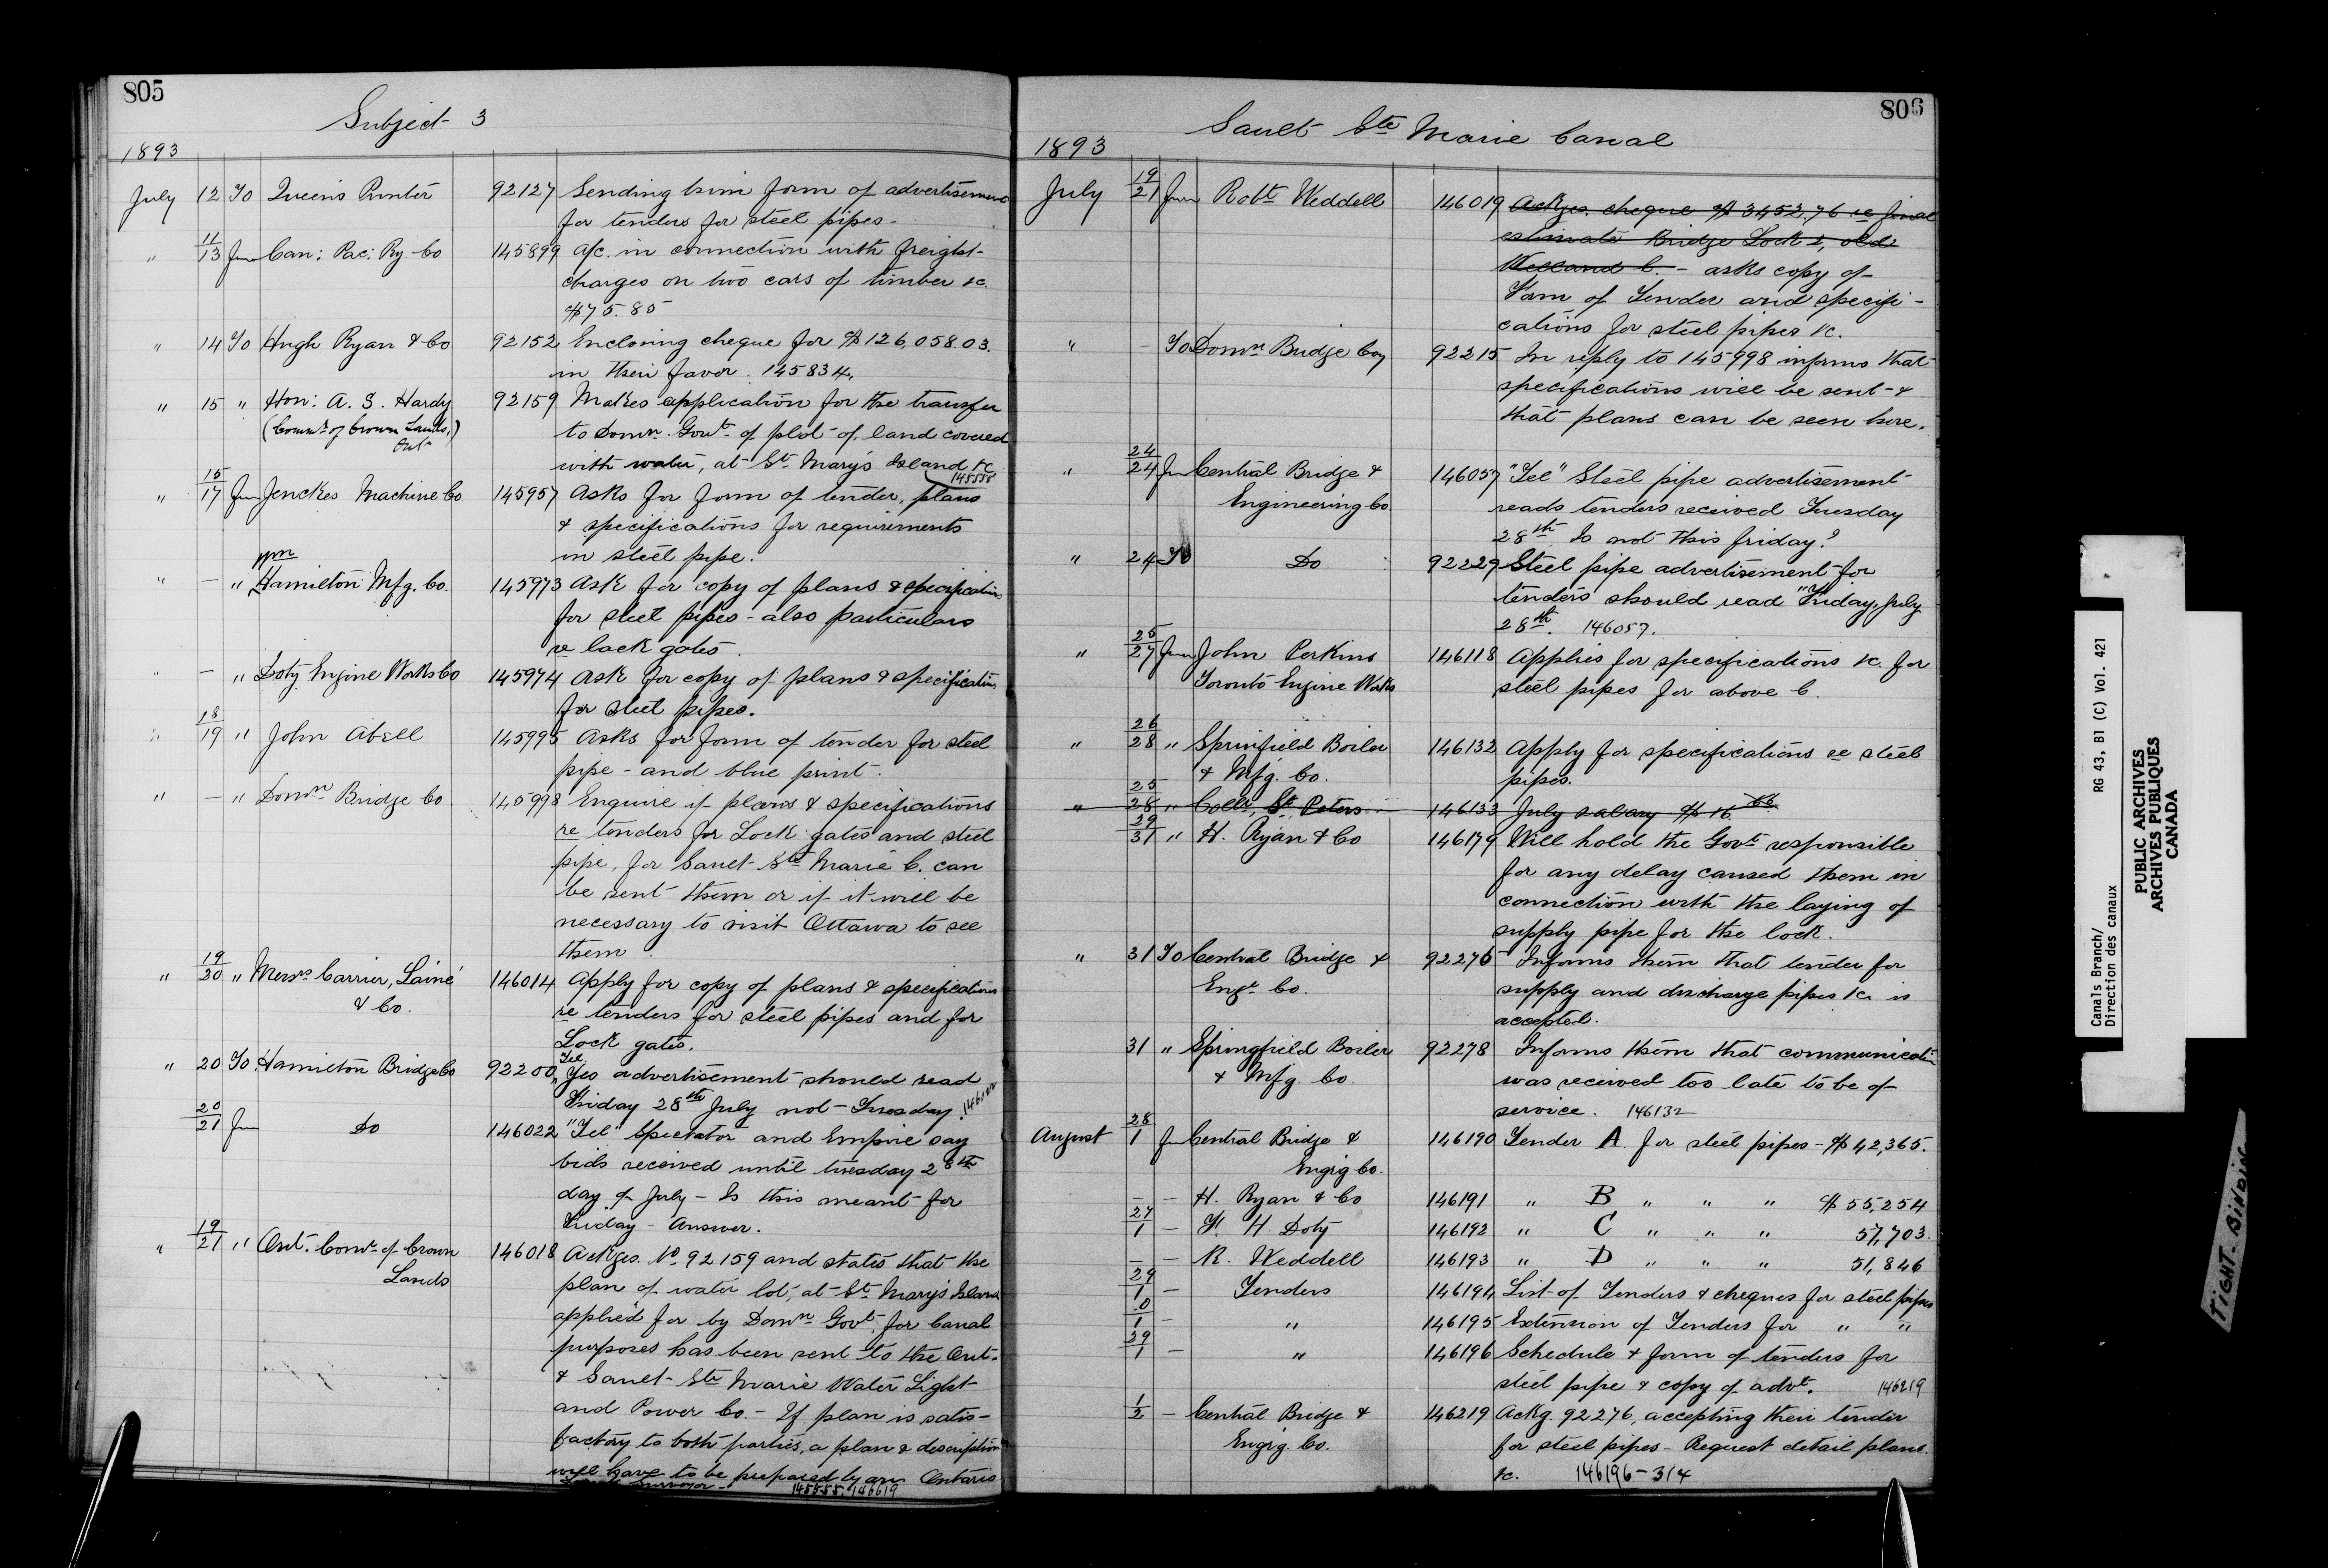 805
Subject 3
1893
July 12 To Queen's Printer 92127 Sending him form of advertisement
for tenders for steel pipes -
" 11/13 from Can: Pac: Ry Co 145899 A/c. in connection with freight
charges on two cars of timber &c.
$75.85
" 14 To Hugh Ryan & Co 92152 Enclosing cheque for $126,058.03.
in their favor. 145834.
" 15 " Hon: A. S. Hardy 92159 Makes application for the transfer
(Commr of Crown Lands,) to Domn. Govt. of plot of land covered
Ont
with water, at St. Mary's Island &c
145558
" 15/17 from Jenckes Machine Co. 145957 Asks for form of tender, plans
& specifications for requirements
in steel pipe.
" — " Hamilton Mfg. Co. 145973 Ask for copy of plans & specifications
for steel pipes - also particulars
re lock gates.
" — " Doty Engine Works Co 145974 Ask for copy of plans & specifications
for steel pipes.
" 18/19 " John Abell 145995 Asks for form of tender for steel
pipe - and blue print.
" — " Domn Bridge Co. 145998 Enquire if plans & specifications
re tenders for Lock gates and steel
pipe, for Sault Ste Marie C. can
be sent them or if it will be
necessary to visit Ottawa to see
them.
" 19/20 " Messrs Carrier, Lainé 146014 Apply for copy of plans & specifications
& Co. re tenders for steel pipes and for
Lock gates.
" 20 To Hamilton Bridge Co 92200 "Tel" Yes advertisement should read
Friday 28th July not Tuesday. 146022
20/21 from Do 146022 "Tel" Spectator and Empire say
bids received until tuesday 28th
day of July - Is this meant for
Friday - Answer.
" 19/21 " Ont. Comr. of Crown 146018 Ackges. No 92159 and states that the
Lands plan of water lot, at St. Mary's Island
applied for by Domn Govt. for Canal
purposes has been sent to the Ont.
& Sault Ste Marie Water Light
and Power Co. - If plan is satis-
factory to both parties, a plan & description
will have to be prepared by an Ontario
Surveyor - 145558, 146619
806
Sault Ste Marie Canal
1893
July 19/21 from Robt Weddell 146019 Ackges. cheque $3452.76 re final
estimate Bridge Lock 2, old
Welland C. - asks copy of
Form of Tender and specifi-
cations for steel pipes &c.
" — To Domn Bridge Coy 92215 In reply to 145998 informs that
specifications will be sent &
that plans can be seen here.
" 24/24 from Central Bridge & 146057 "Tel" Steel pipe advertisement
Engineering Co reads tenders received Tuesday
28th. Is not this friday?
" 24 To Do 92229 Steel pipe advertisement for
tenders should read "Friday, July
28th. 146057.
" 25/27 from John Perkins 146118 Applies for specifications &c. for
Toronto Engine Works steel pipes for above C.
" 26/28 " Sprinfield Boiler 146132 Apply for specifications re steel
& Mfg. Co. pipes.
" 25/28 " Collr, St. Peters 146133 July salary $16.66
29/31 " H. Ryan & Co 146179 Will hold the Govt responsible
for any delay caused them in
connection with the laying of
supply pipe for the lock.
" 31 To Central Bridge & 92276 Informs them that tender for
Engr. Co. supply and discharge pipes &c is
accepted.
31 " Springfield Boiler 92278 Informs them that communication
& Mfg. Co. was received too late to be of
service. 146132
August 28/1 from Central Bridge & 146190 Tender A for steel pipes - $42,365.
Engrg Co.
— — H. Ryan & Co 146191 " B " " " $55,254
27/1 — F. H. Doty 146192 " C " " " 57,703.
— — R. Weddell 146193 " D " " " 51,846
29/1 — Tenders 146194 List of Tenders & cheques for steel pipes
0/1 — " 146195 Extension of Tenders for " "
29/1 — " 146196 Schedule & form of tenders for
steel pipe & copy of advt. 146219
1/2 — Central Bridge & 146219 Ackg. 92276, accepting their tender
Engrg. Co. for steel pipes - Request detail plans
&c. 146196-314
Canals Branch/
Direction des canaux
RG 43, B1 (C) Vol. 421
PUBLIC ARCHIVES
ARCHIVES PUBLIQUES
CANADA
TIGHT BINDING